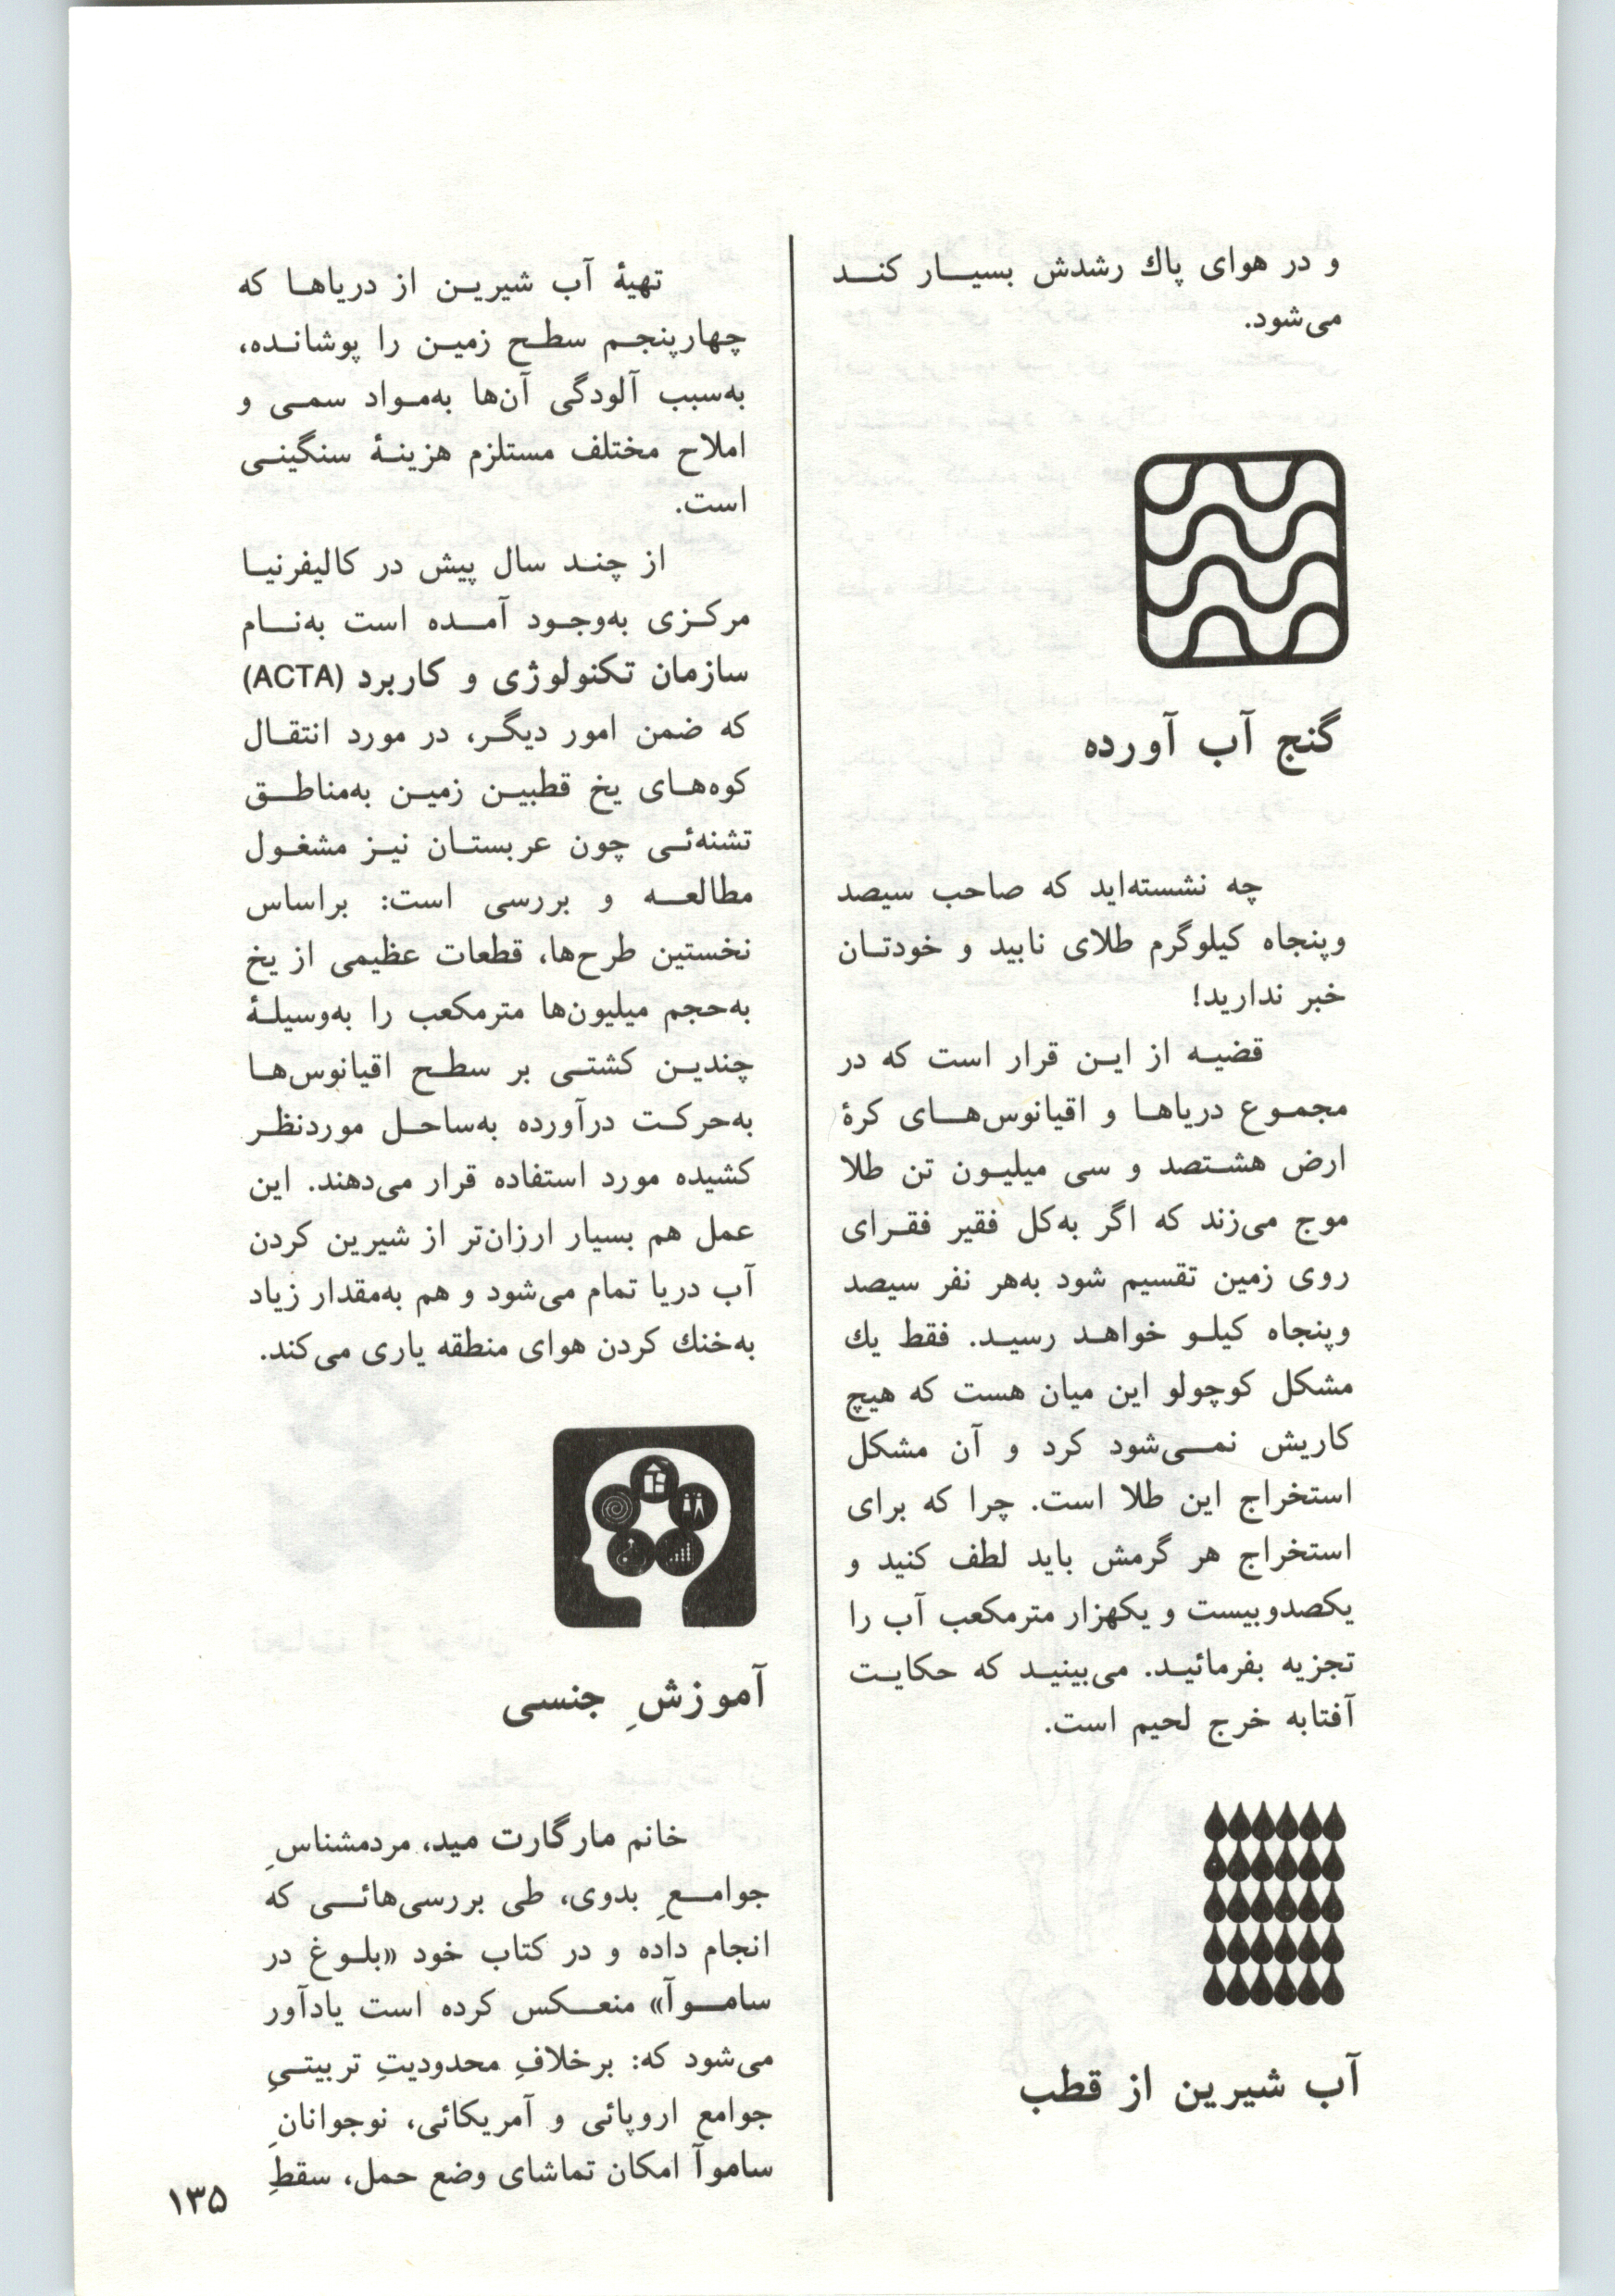 و در هوای پاك رشدش بسیار کند
می‌شود.
گنج آب آورده
چه نشسته‌اید که صاحب سیصد
وپنجاه کیلوگرم طلای نابید و خودتان
خبر ندارید!
قضیه از این قرار است که در
مجموع دریاها و اقیانوس‌های کرهٔ
ارض هشتصد و سی میلیون تن طلا
موج می‌زند که اگر به‌کل فقیر فقرای
روی زمین تقسیم شود به‌هر نفر سیصد
وپنجاه کیلو خواهد رسید. فقط یك
مشکل کوچولو این میان هست که هیچ
کاریش نمی‌شود کرد و آن مشکل
استخراج این طلا است. چرا که برای
استخراج هر گرمش باید لطف کنید و
یکصدوبیست و یکهزار مترمکعب آب را
تجزیه بفرمائید. می‌بینید که حکایت
آفتابه خرج لحیم است.
آب شیرین از قطب
تهیهٔ آب شیرین از دریاها که
چهارپنجم سطح زمین را پوشانده،
به‌سبب آلودگی آن‌ها به‌مواد سمی و
املاح مختلف مستلزم هزینهٔ سنگینی
است.
از چند سال پیش در کالیفرنیا
مرکزی به‌وجود آمده است به‌نام
سازمان تکنولوژی و کاربرد (ACTA)
که ضمن امور دیگر، در مورد انتقال
کوه‌های یخ قطبین زمین به‌مناطق
تشنه‌ئی چون عربستان نیز مشغول
مطالعه و بررسی است: براساس
نخستین طرح‌ها، قطعات عظیمی از یخ
به‌حجم میلیون‌ها مترمکعب را به‌وسیلهٔ
چندین کشتی بر سطح اقیانوس‌ها
به‌حرکت درآورده به‌ساحل موردنظر
کشیده مورد استفاده قرار می‌دهند. این
عمل هم بسیار ارزان‌تر از شیرین کردن
آب دریا تمام می‌شود و هم به‌مقدار زیاد
به‌خنك کردن هوای منطقه یاری می‌کند.
آموزشِ جنسی
خانم مارگارت مید، مردمشناسِ
جوامعِ بدوی، طی بررسی‌هائی که
انجام داده و در کتاب خود «بلوغ در
ساموآ» منعکس کرده است یادآور
می‌شود که: برخلافِ محدودیتِ تربیتیِ
جوامع اروپائی و آمریکائی، نوجوانانِ
ساموآ امکان تماشای وضع حمل، سقطِ
۱۳۵